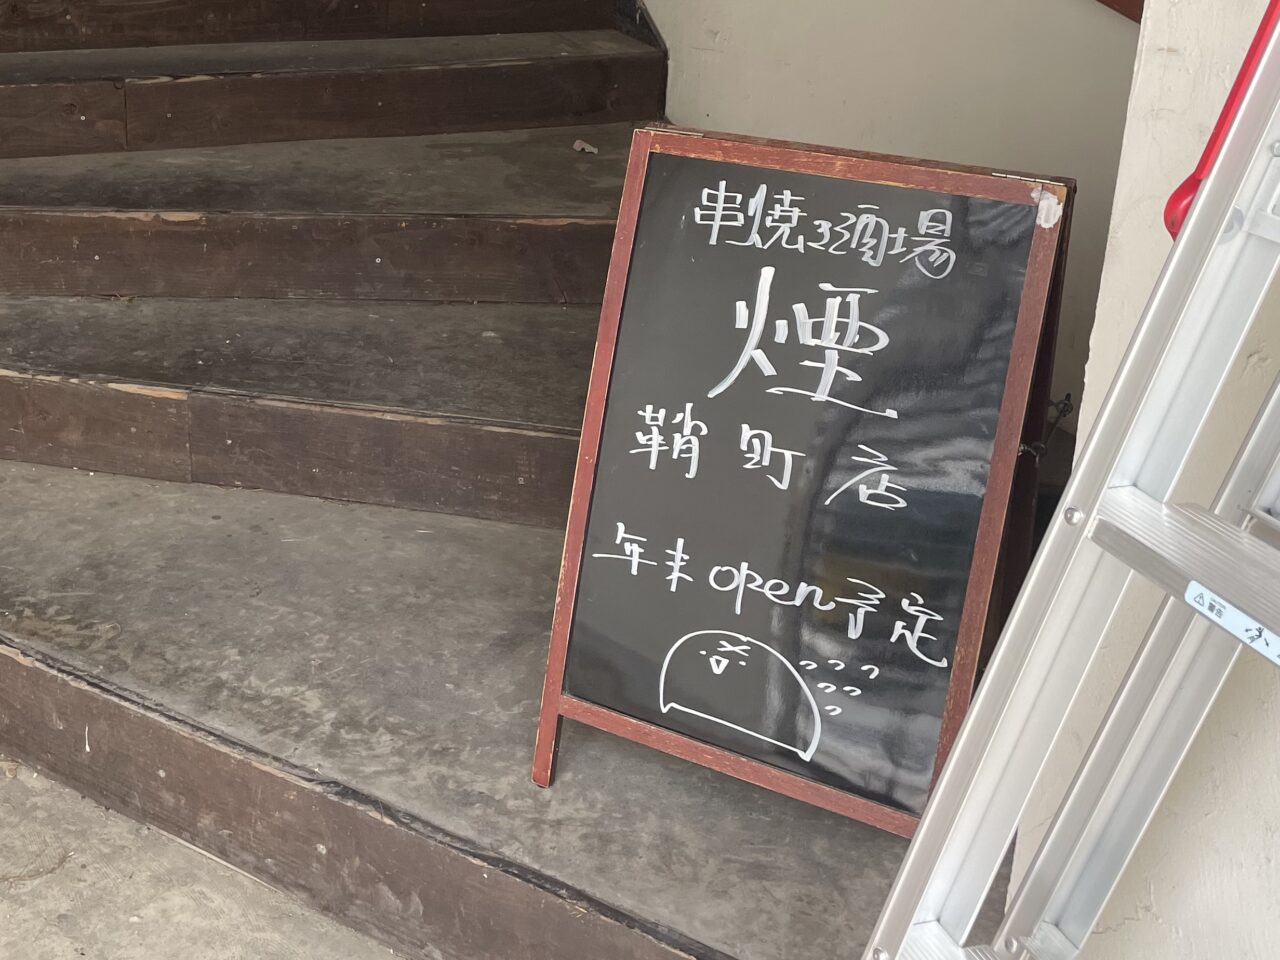 串焼き酒場
煙
鞘町店
年末open予定
警告